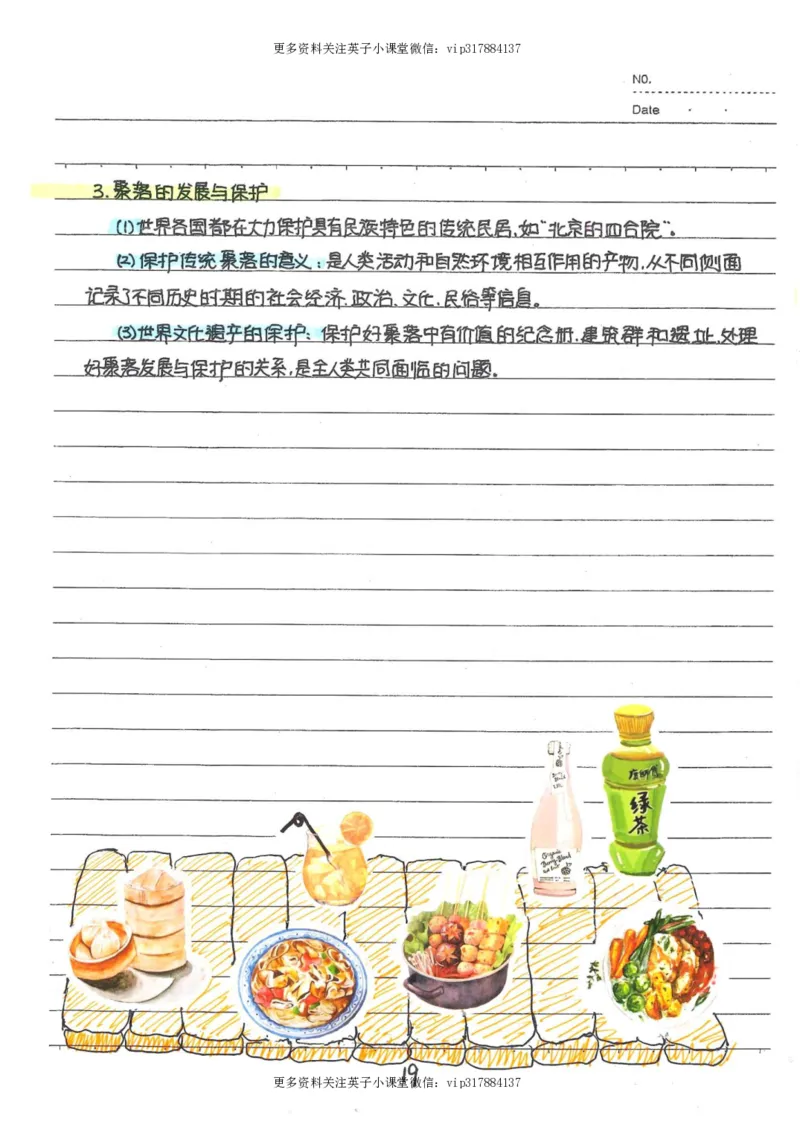 更多资料关注英子小课堂微信：vip317884137
NO.
Date
3.聚落的发展与保护
(1)世界各国都在大力保护具有民族特色的传统民居,如"北京的四合院"。
(2)保护传统聚落的意义:是人类活动和自然环境相互作用的产物,从不同侧面
记录了不同历史时期的社会经济、政治、文化、民俗等信息。
(3)世界文化遗产的保护:保护好聚落中有价值的纪念册,建筑群和遗址,处理
好聚落发展与保护的关系,是全人类共同面临的问题。
绿
茶
Organic
19
更多资料关注英子小课堂微信：vip317884137